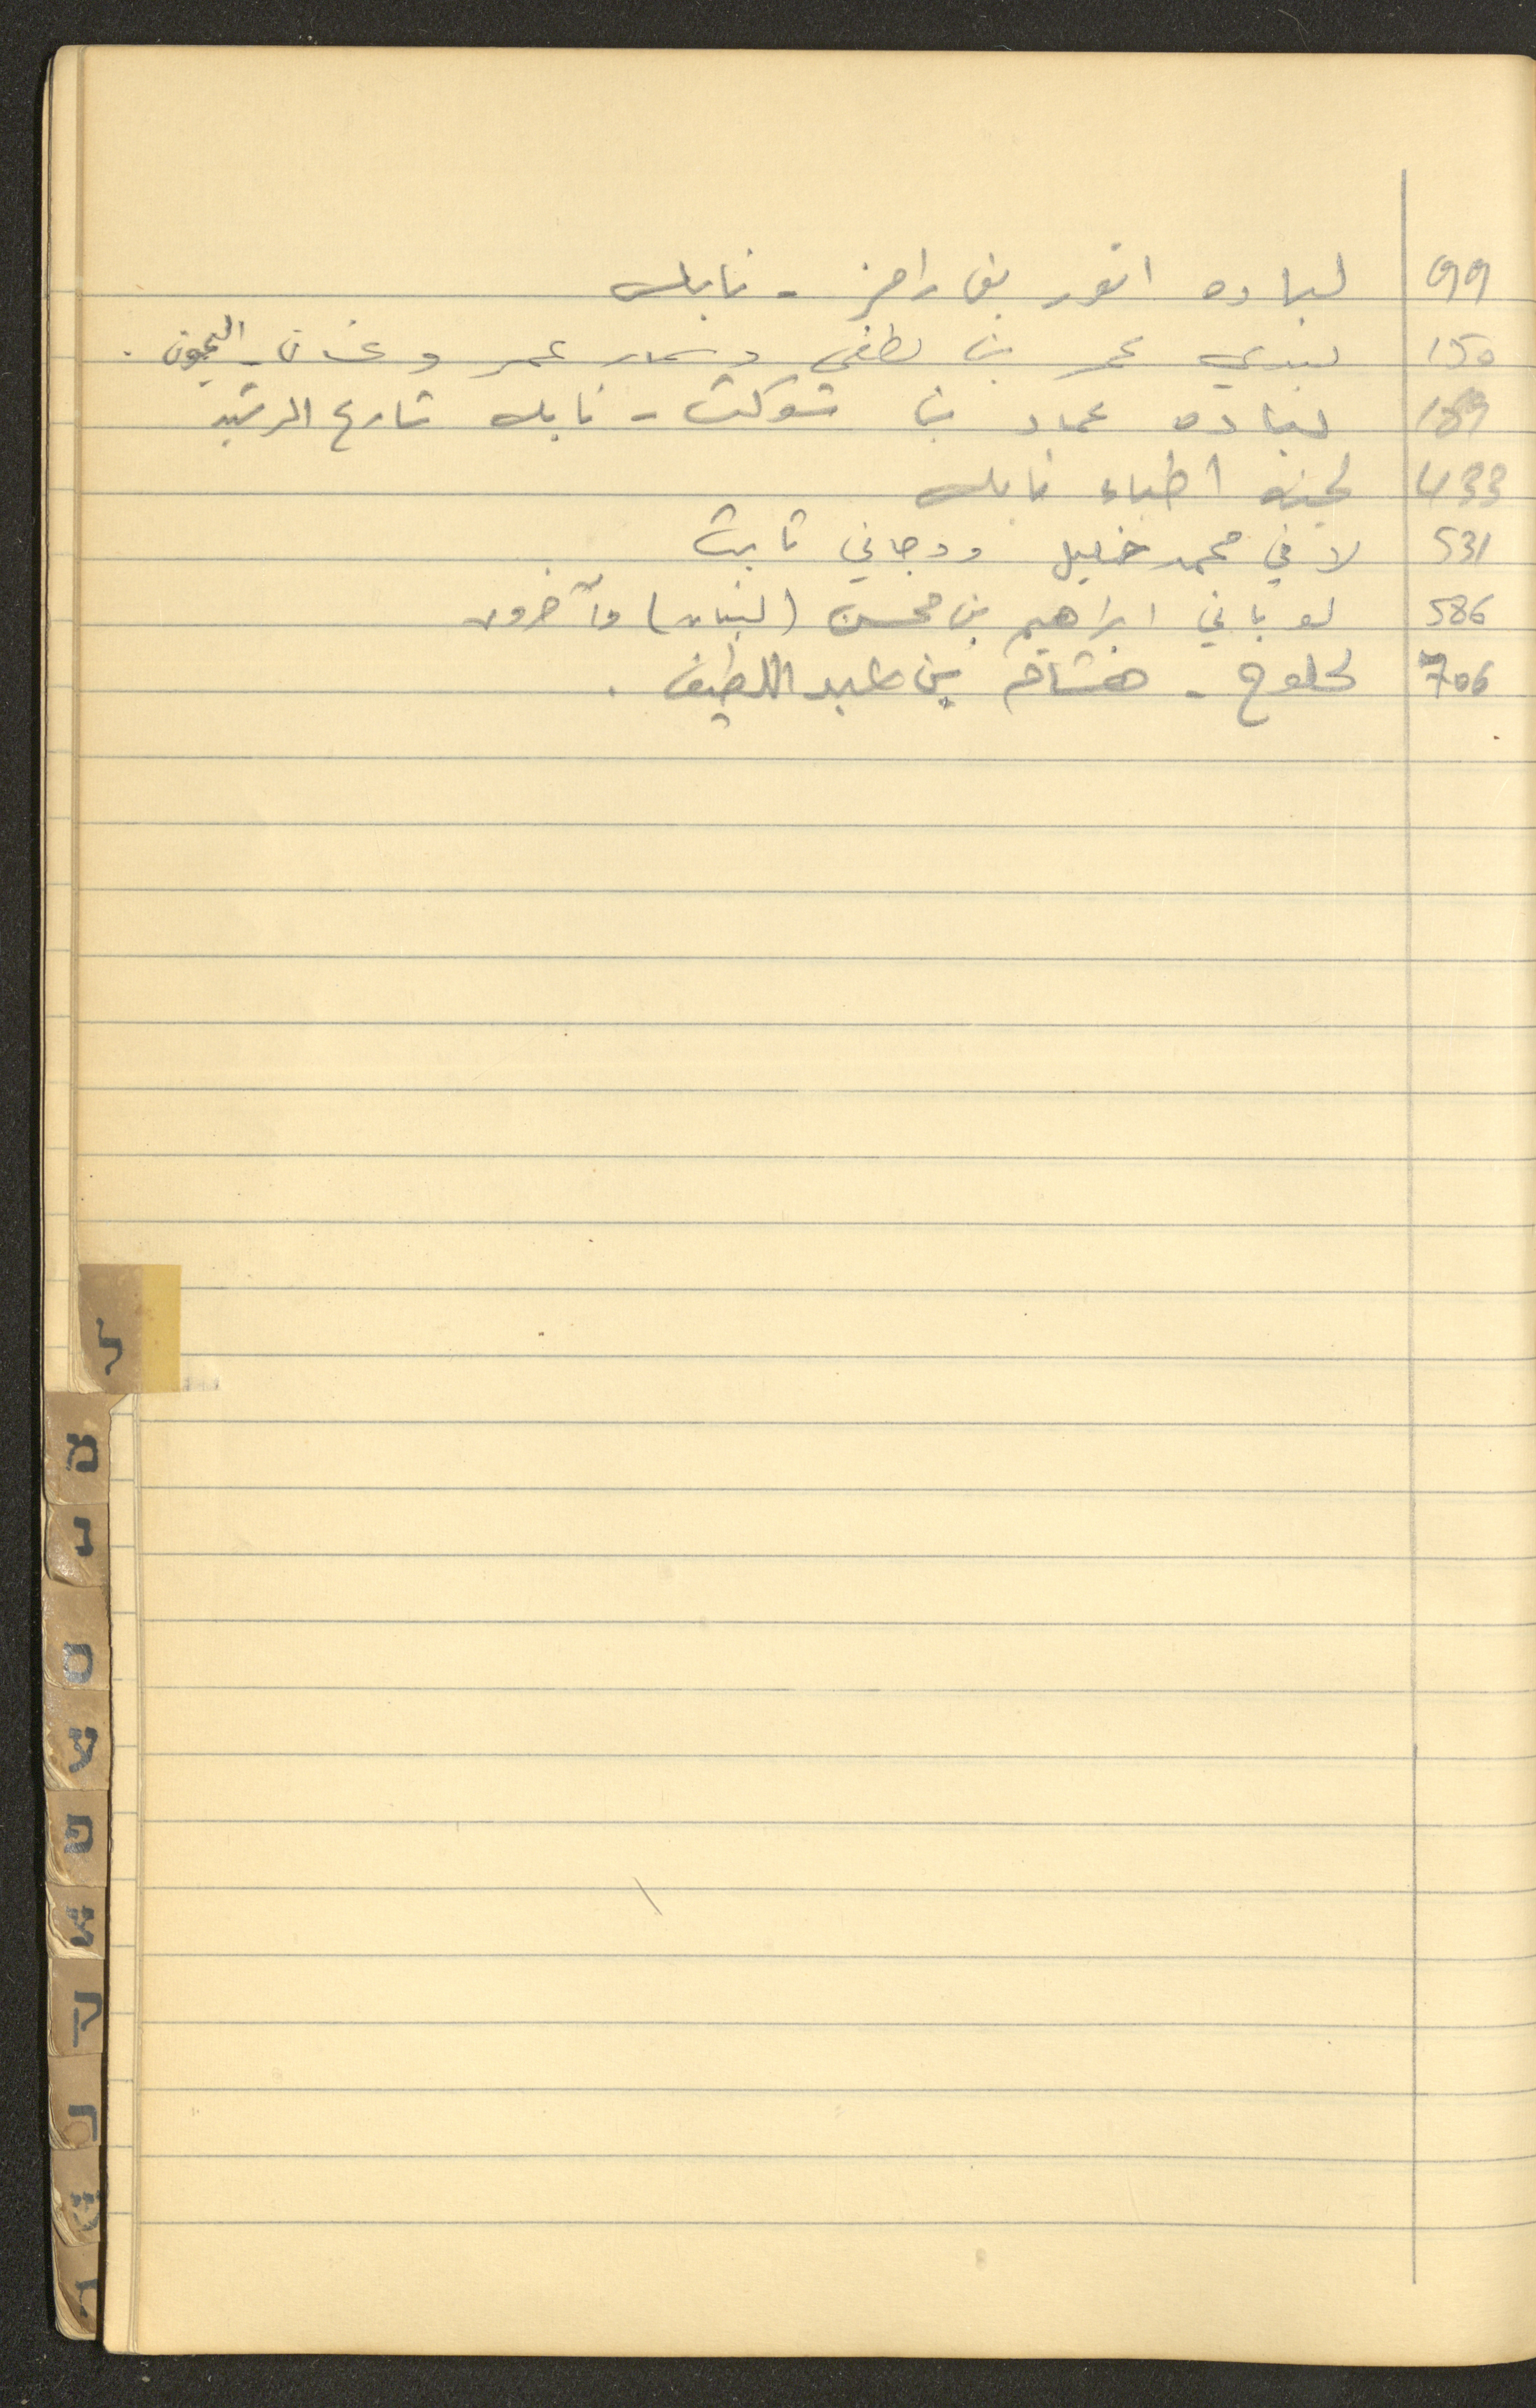 99 لباده انور بن رامز - نابلس
150 لبدي عمر بن لطفي وسمار عمر وغسان - اللجون .
189 لباده عماد بن شوكت - نابلس شارع الرشيد
433 لجنة اطباء نابلس
531 لافي محمد خليل ودجاني ثابت
586 لوباني ابراهيم بن محسن (لبنان) وآخرون
706 لحلوح - هشام بن عبد اللطيف .
ל
מ
נ
ס
ע
פ
צ
ק
ר
ש
ת